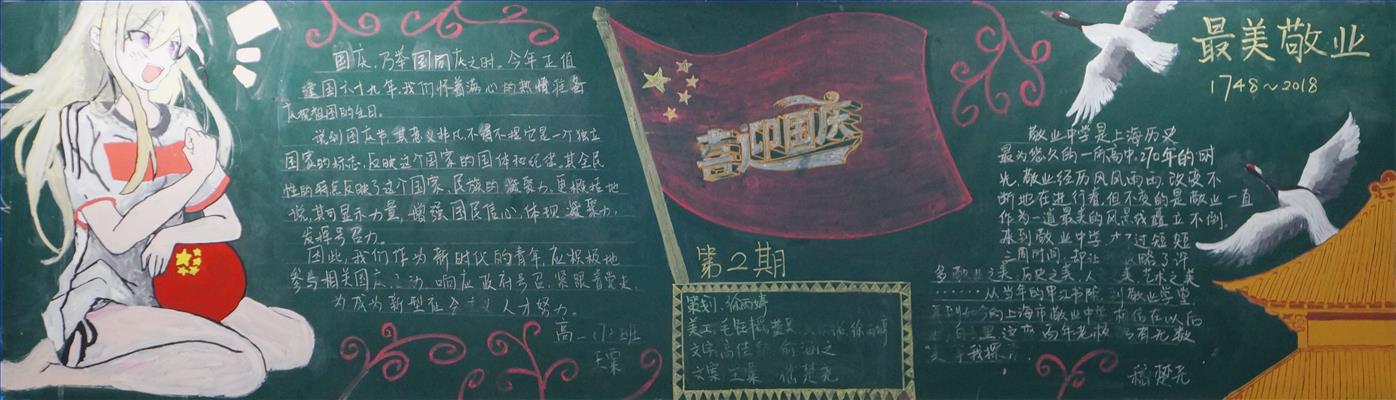 国庆,乃举国同庆之时。今年正值
建国六十九年,我们怀着满心的热情
庆祝祖国的生日。
说到国庆节,其意义非凡,不得不提它是一个独立
国家的标志,反映这个国家的国体和政体,其全民
性的特点反映了这个国家、民族的凝聚力,更概括地
说,其可显示力量,增强国民信心,体现凝聚力,
发挥号召力。
因此,我们作为新时代的青年,应积极地
参与相关国庆活动,响应政府号召,紧跟着党走,
为成为新型社会主义人才努力。
高一(7)班
王
喜迎国庆
第2期
策划:徐
美工:毛
文字:高佳 俞涵之
文案:王 楚尧
最美敬业
1748~2018
敬业中学是上海历史
最为悠久的一所高中,270年的时
光,敬业经历风风雨雨,改变不
断地在进行着,但不变的是敬业一直
作为一道最美的风景线矗立不倒。
来到敬业中学才才过短短
三周时间,却让 略了许
多敬业之美,历史之美,人 之美,艺术之美
……从当年的申江书院 到敬业学堂
的上海市敬业中学 在以后
的 里 这 百年老校 有无数
等我探
楚尧